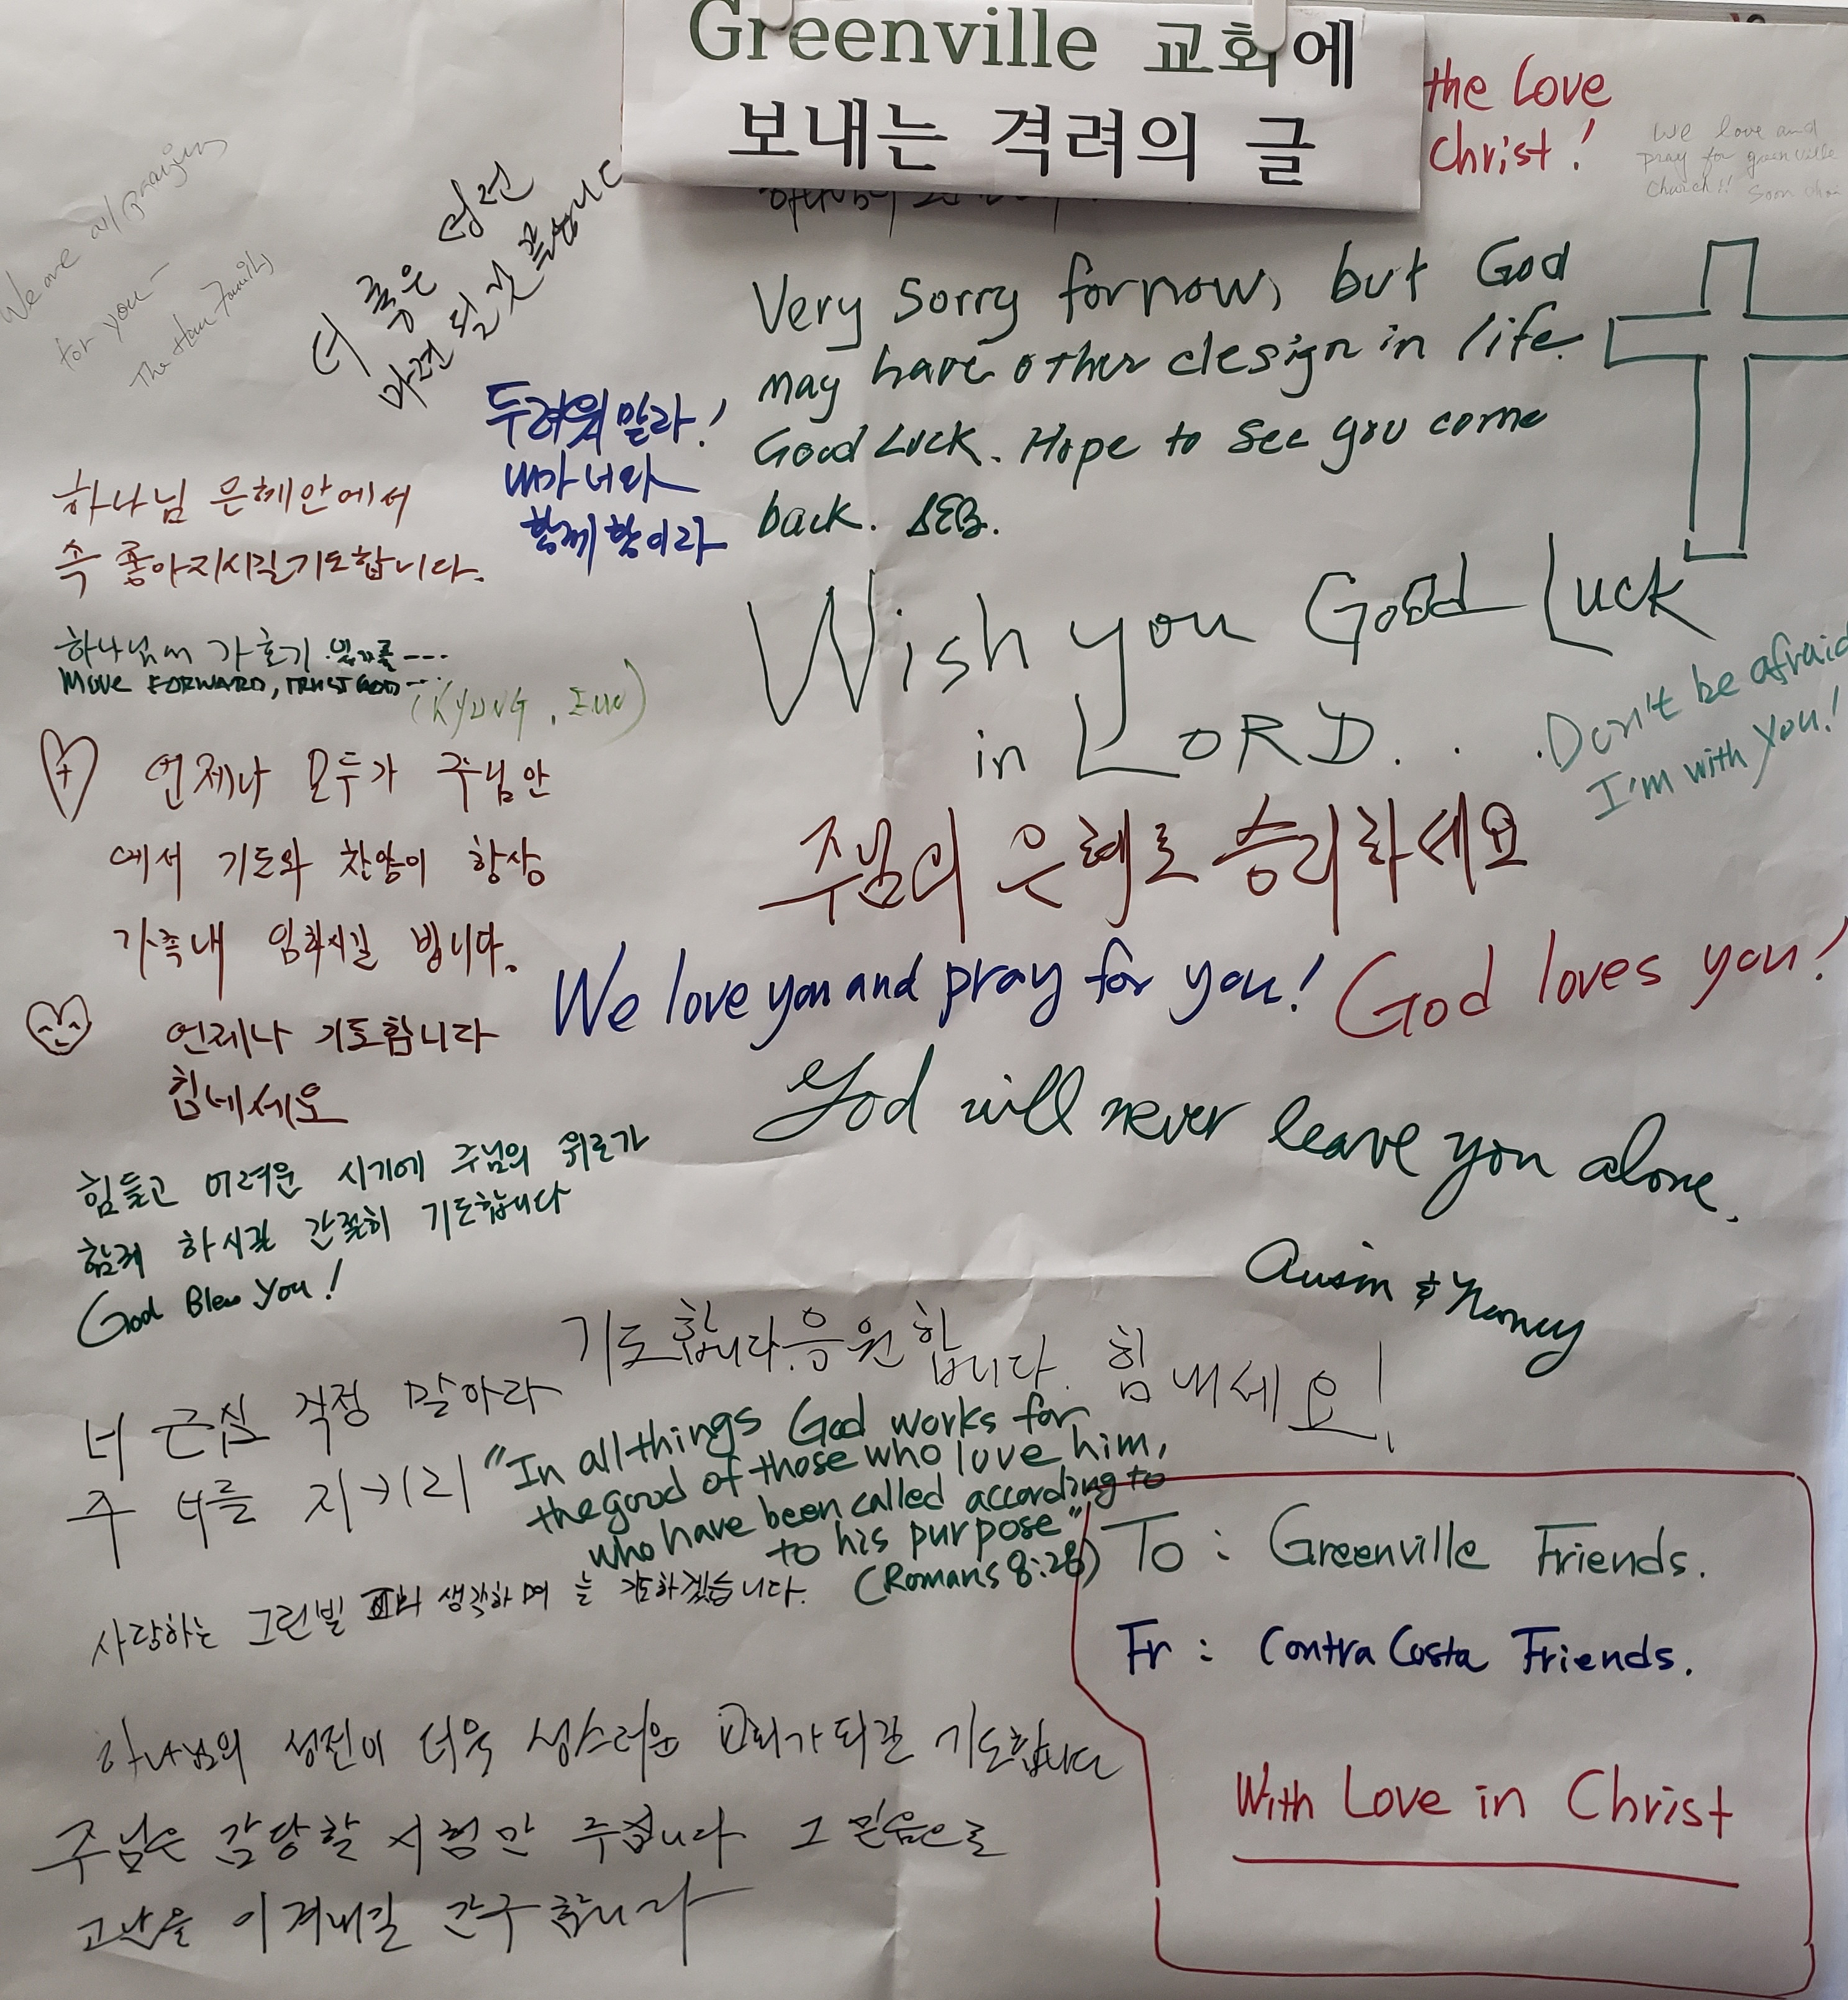 Greenville 교회에
보내는 격려의 글
the Love
Christ!
We love and
pray for greenville
Church!! Soon
We are all praying
for you-
The Han Family
더 좋은 성전
마련 될 것 믿습니다
두려워 말라!
내가 너와
함께 함이라
Very Sorry for now, but God
may have other design in life.
Good Luck. Hope to see you come
back.
하나님 은혜안에서
속 좋아지시길 기도합니다.
하나님에 가호기 빌기를----
MOVE FORWARD, TRUST GOD--
(KYUNG, EUN)
Wish you Good Luck
in LORD.
Don't be afraid
I'm with you!
언제나 모두가 주님안
에서 기도와 찬양이 항상
가족내 임하시길 빕니다.
주님의 은혜로 승리하세요
We love you and pray for you!
God loves you!
언제나 기도합니다
힘내세요
God will never leave you alone.
& Nancy
힘들고 어려운 시기에 주님의 위로가
함께 하시길 간절히 기도합니다
God Bless You!
기도합니다. 응원합니다. 힘내세요!
너 근심 걱정 말아라
주 너를 지키리
"In all things God works for
the good of those who love him,
who have been called according to
to his purpose"
(Romans 8:28)
사랑하는 그린빌 생각하며 늘 기도하겠습니다.
To : Greenville Friends.
Fr : Contra Costa Friends.
With Love in Christ
하나님의 성전이 더욱 성스러운 교회가 되길 기도합니다
주님은 감당할 시험만 주십니다 그 믿음으로
고난을 이겨내길 간구합니다